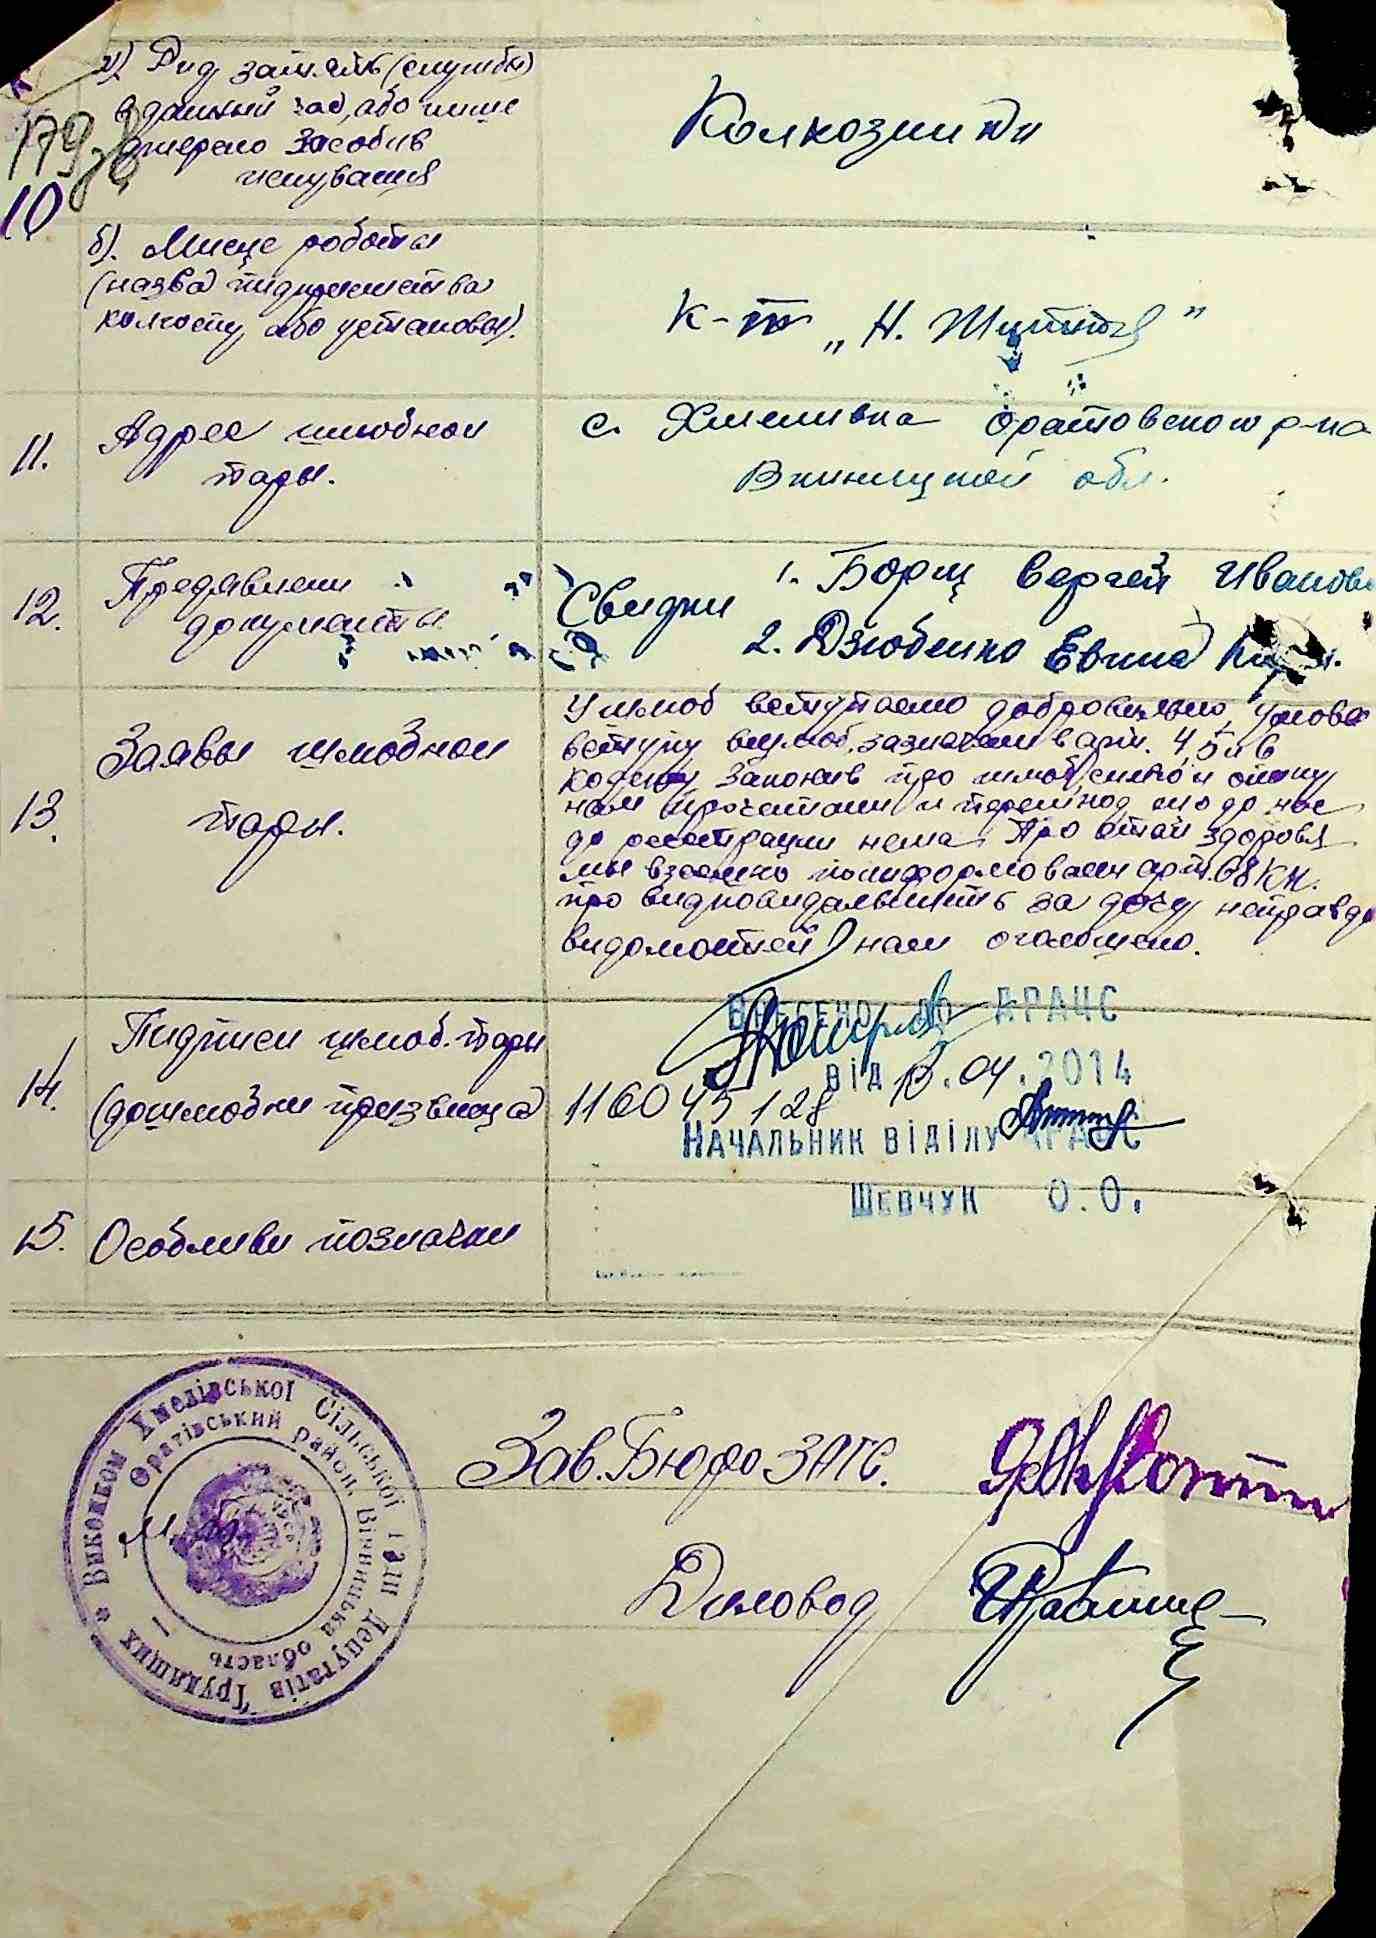 а) Рид занять (служби)
в даний час, або инше
джерело засобив
иснування
179
10
Колхозники
б). Мисце работы
(назва) пидприемства
колгоспу, або установы).
К-п „Н. Життя"
11.
Адрес шлюбнои
пары.
с. Хмеливка Оратовского р-на
Винницкой обл.
12.
Предявлени
документы
Свидки
1. Борщ Сергей Иванов
2. Дзюбенко Евгид
13.
Заявы шлюбнои
пары.
У шлюб вступаемо добровильно, умовы
вступу в шлюб, зазначени в арт. 4, 5 и 6
кодексу законив про шлюб, симю и опику
нам прочитани и перепкод що до нас
до реестрации нема. Про стан здоровя
мы взаемно поинформовани арт. 68 КК.
про видповидальнисть за дачу неправд
видомостей нам оголошено.
14.
Пидписи шлюб. пары
(дошлюбни призвища)
Внесено до ДРАЦС
від 10.04.2014
116045128
Начальник відділу ДРАЦС
Шевчук О.О.
15.
Особливи позначки
Виконком Хмелівської Сільської Ради Депутатів Трудящих
Оратівський район, Вінницька область
М.П.
Зав. Бюро ЗАГС.
Диловод